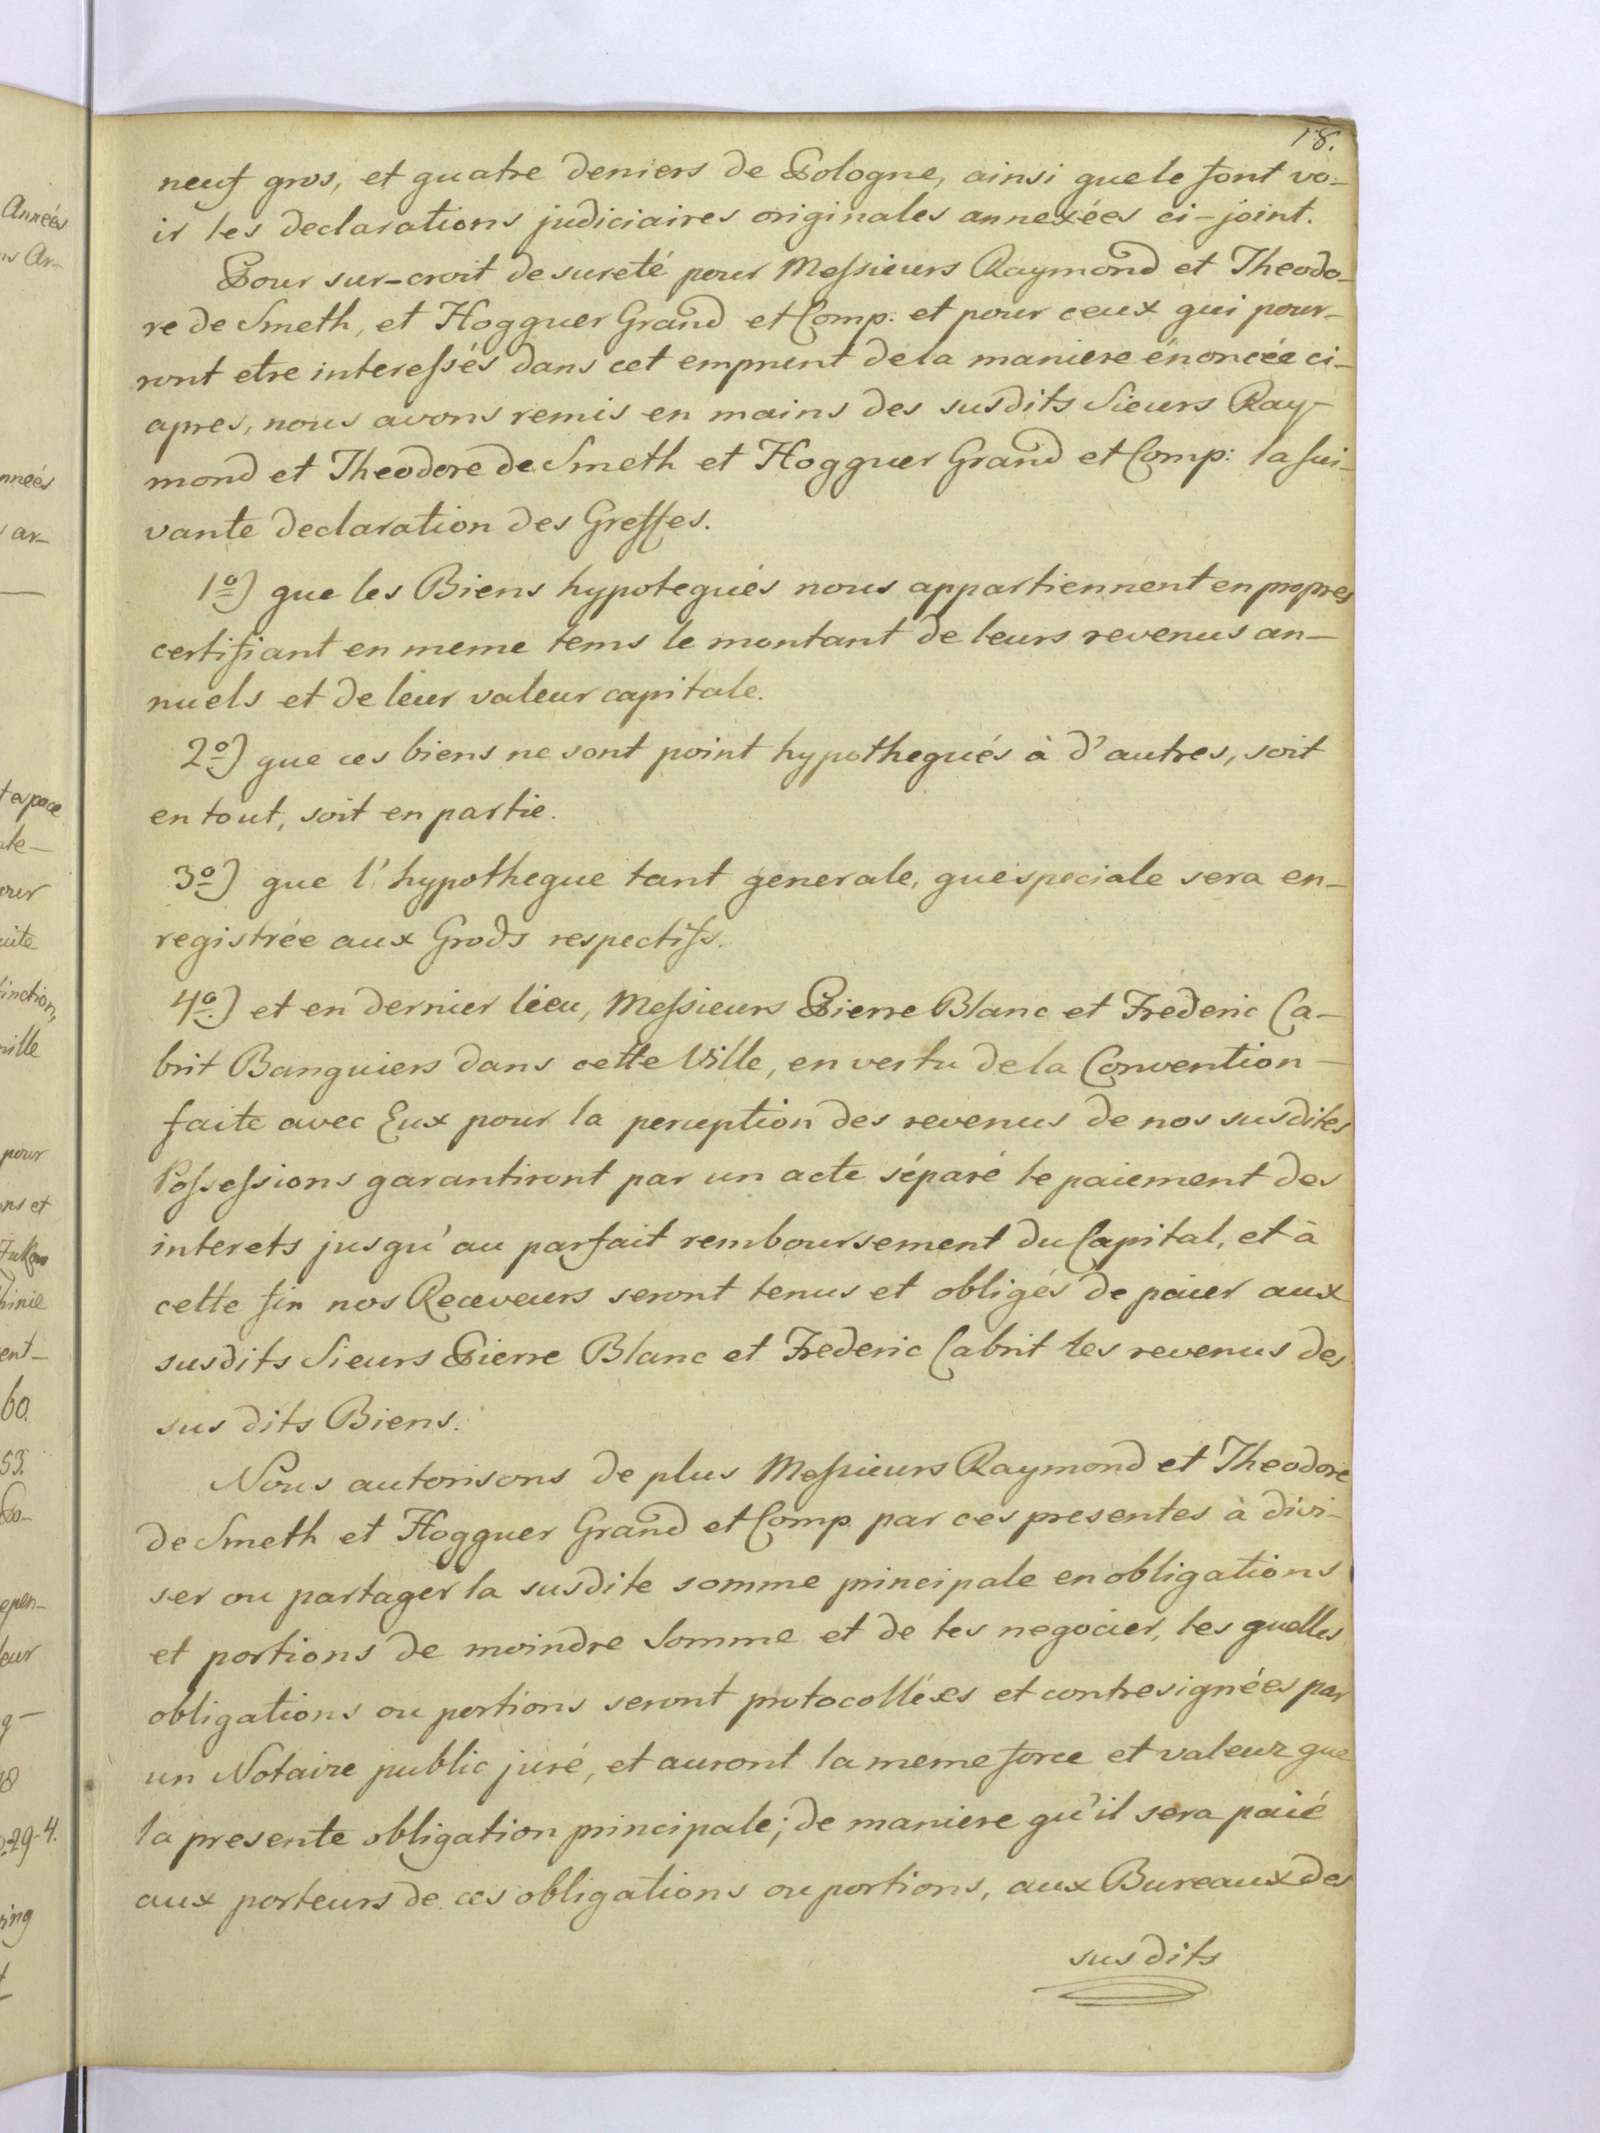 18.
neuf gros, et quatre deniers de Pologne, ainsi que le font vo-
ir les declarations judiciaires originales annexées ci-joint.
Pour sur-croit de sureté pour Messieurs Raymond et Theodo-
re de Smeth, et Hogguer Grand et Comp. et pour ceux qui pour-
ront etre interessés dans cet emprunt de la maniere énoncée ci-
apres, nous avons remis en mains des susdits Sieurs Ray-
mond et Theodore de Smeth et Hogguer Grand et Comp: la sui-
vante declaration des Greffes.
1º) que les Biens hypotequés nous appartiennent en propres
certifiant en meme tems le montant de leurs revenus an-
nuels et de leur valeur capitale.
2º) que ces biens ne sont point hypothequés à d'autres, soit
en tout, soit en partie.
3º) que l'hypotheque tant generale, que speciale sera en-
registrée aux Grods respectifs.
4º) et en dernier lieu, Messieurs Pierre Blanc et Fréderic Ca-
brit Banquiers dans cette Ville, en vertu de la Convention
faite avec Eux pour la perception des revenus de nos susdites
Possessions garantiront par un acte séparé le paiement des
interets jusqu'au parfait remboursement du Capital, et à
cette fin nos Receveurs seront tenus et obligés de païer aux
susdits Sieurs Pierre Blanc et Frederic Cabrit les revenus des
sus dits Biens.
Nous autorisons de plus Messieurs Raymond et Theodore
de Smeth et Hogguer Grand et Comp. par ces presentes à divi-
ser ou partager la susdite somme principale en obligations
et portions de moindre somme et de les negocier, les quelles
obligations ou portions seront protocollées et contresignées par
un Notaire public juré, et auront la meme force et valeur que
la presente obligation principale; de maniere qu'il sera païé
aux porteurs de ces obligations ou portions, aux Bureaux des
sus dits